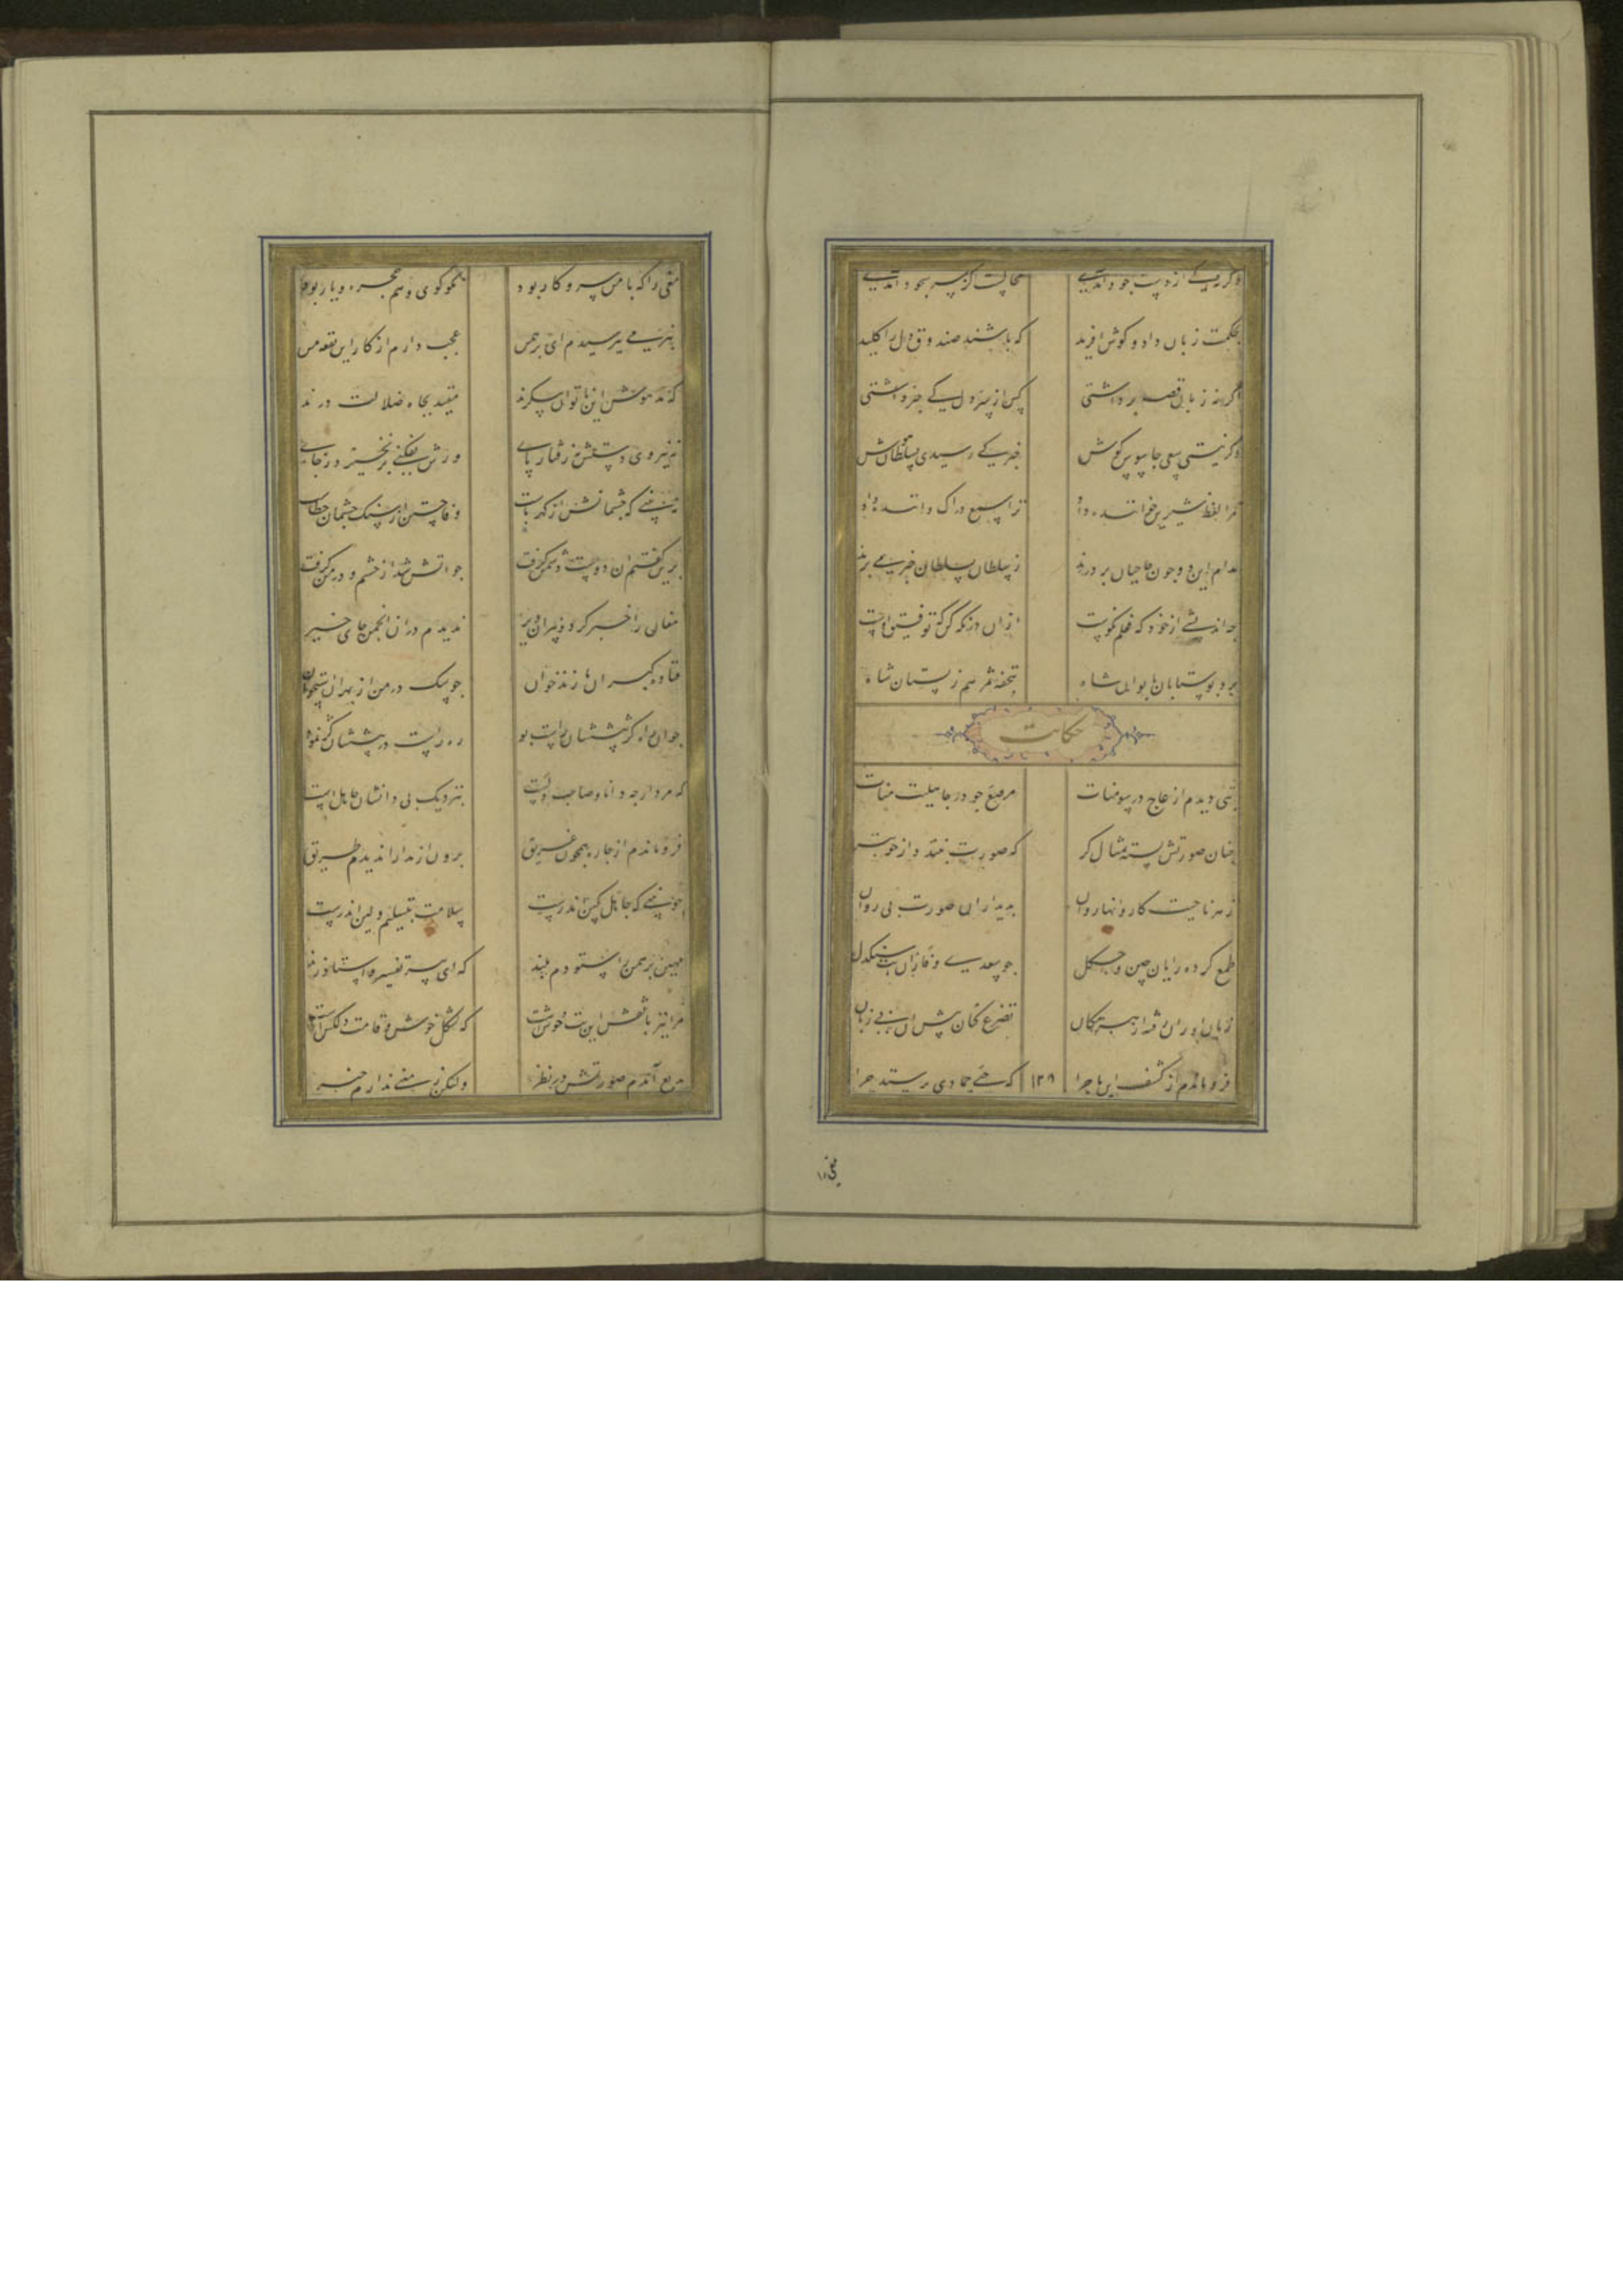 وگر نیک از دست جود آمدی محالست کز سر سجود آمدی
بحکمت زبان داد و گوش آفرید که باشند صندوق دل را کلید
اگر نه زبان قصه برداشتی کس از سر دل کی خبر داشتی
وگر نیستی سعی جاسوس گوش خبر کی رسیدی بسلطان هوش
مرا لفظ شیرین خواننده داد ترا سمع دراک داننده داد
مدام این دو چون حاجبان بر درند ز سلطان بسلطان خبر می برند
چه اندیشی از خود که فعلم نکوست ازان در نکه کن که توفیق اوست
برد بوستابان بایوان شاه بتحفه ثمر هم ز بستان شاه
حکایت
بتی دیدم از عاج در سومنات مرصع چو در جاهلیت منات
چنان صورتش بسته تمثال گر که صورت نبندد از خوبتر
ز هر ناحیت کاروانها روان بدیدار ان صورت بی روان
طمع کرده رایان چین و چگل چو سعدی وفا زان بت سنگدل
زبان اوران رفته از هر مکان تضرع کنان پیش ان بی زبان
فرو ماندم از کشف ان ماجرا که حیی جمادی پرستد چرا
۱۲۹
مغی را
مغی را که با من سر و کار بود نکو گوی و هم حجره و یار بود
بنرمی بپرسیدم ای برهمن عجب دارم از کار این بقعه من
که مدهوش این ناتوان پیکرند مقید بچاه ضلالت درند
نه نیروی دستش نه رفتار پای ورش بفکنی بر نخیزد ز جای
نه بینی که چشمانش از کهرباست وفا جستن از سنگ چشمان خطاست
برین گفتم ان دوست دشمن گرفت چو اتش شد از خشم و در من گرفت
مغان را خبر کرد و پیران دیر ندیدم دران انجمن جای خیر
فتادند گبران پازند خوان چو سگ در من از بهر ان استخوان
چو ان راه کژ پیششان راست بود ره راست در پیششان کژ نمود
که مرد ار چه دانا و صاحب دلست بنزدیک بی دانشان جاهل است
فرو ماندم از چاره همچون غریق برون از مدارا ندیدم طریق
چو بینی که جاهل بکین اندرست سلامت بتسلیم و لین اندرست
مهین برهمن را ستودم بلند که ای پیر تفسیر استا و زند
مرا نیز با نقش این بت خوشست که شکل خوش و قامت دلکش است
بدیع آیدم صورتش در نظر ولیکن ز معنی ندارم خبر